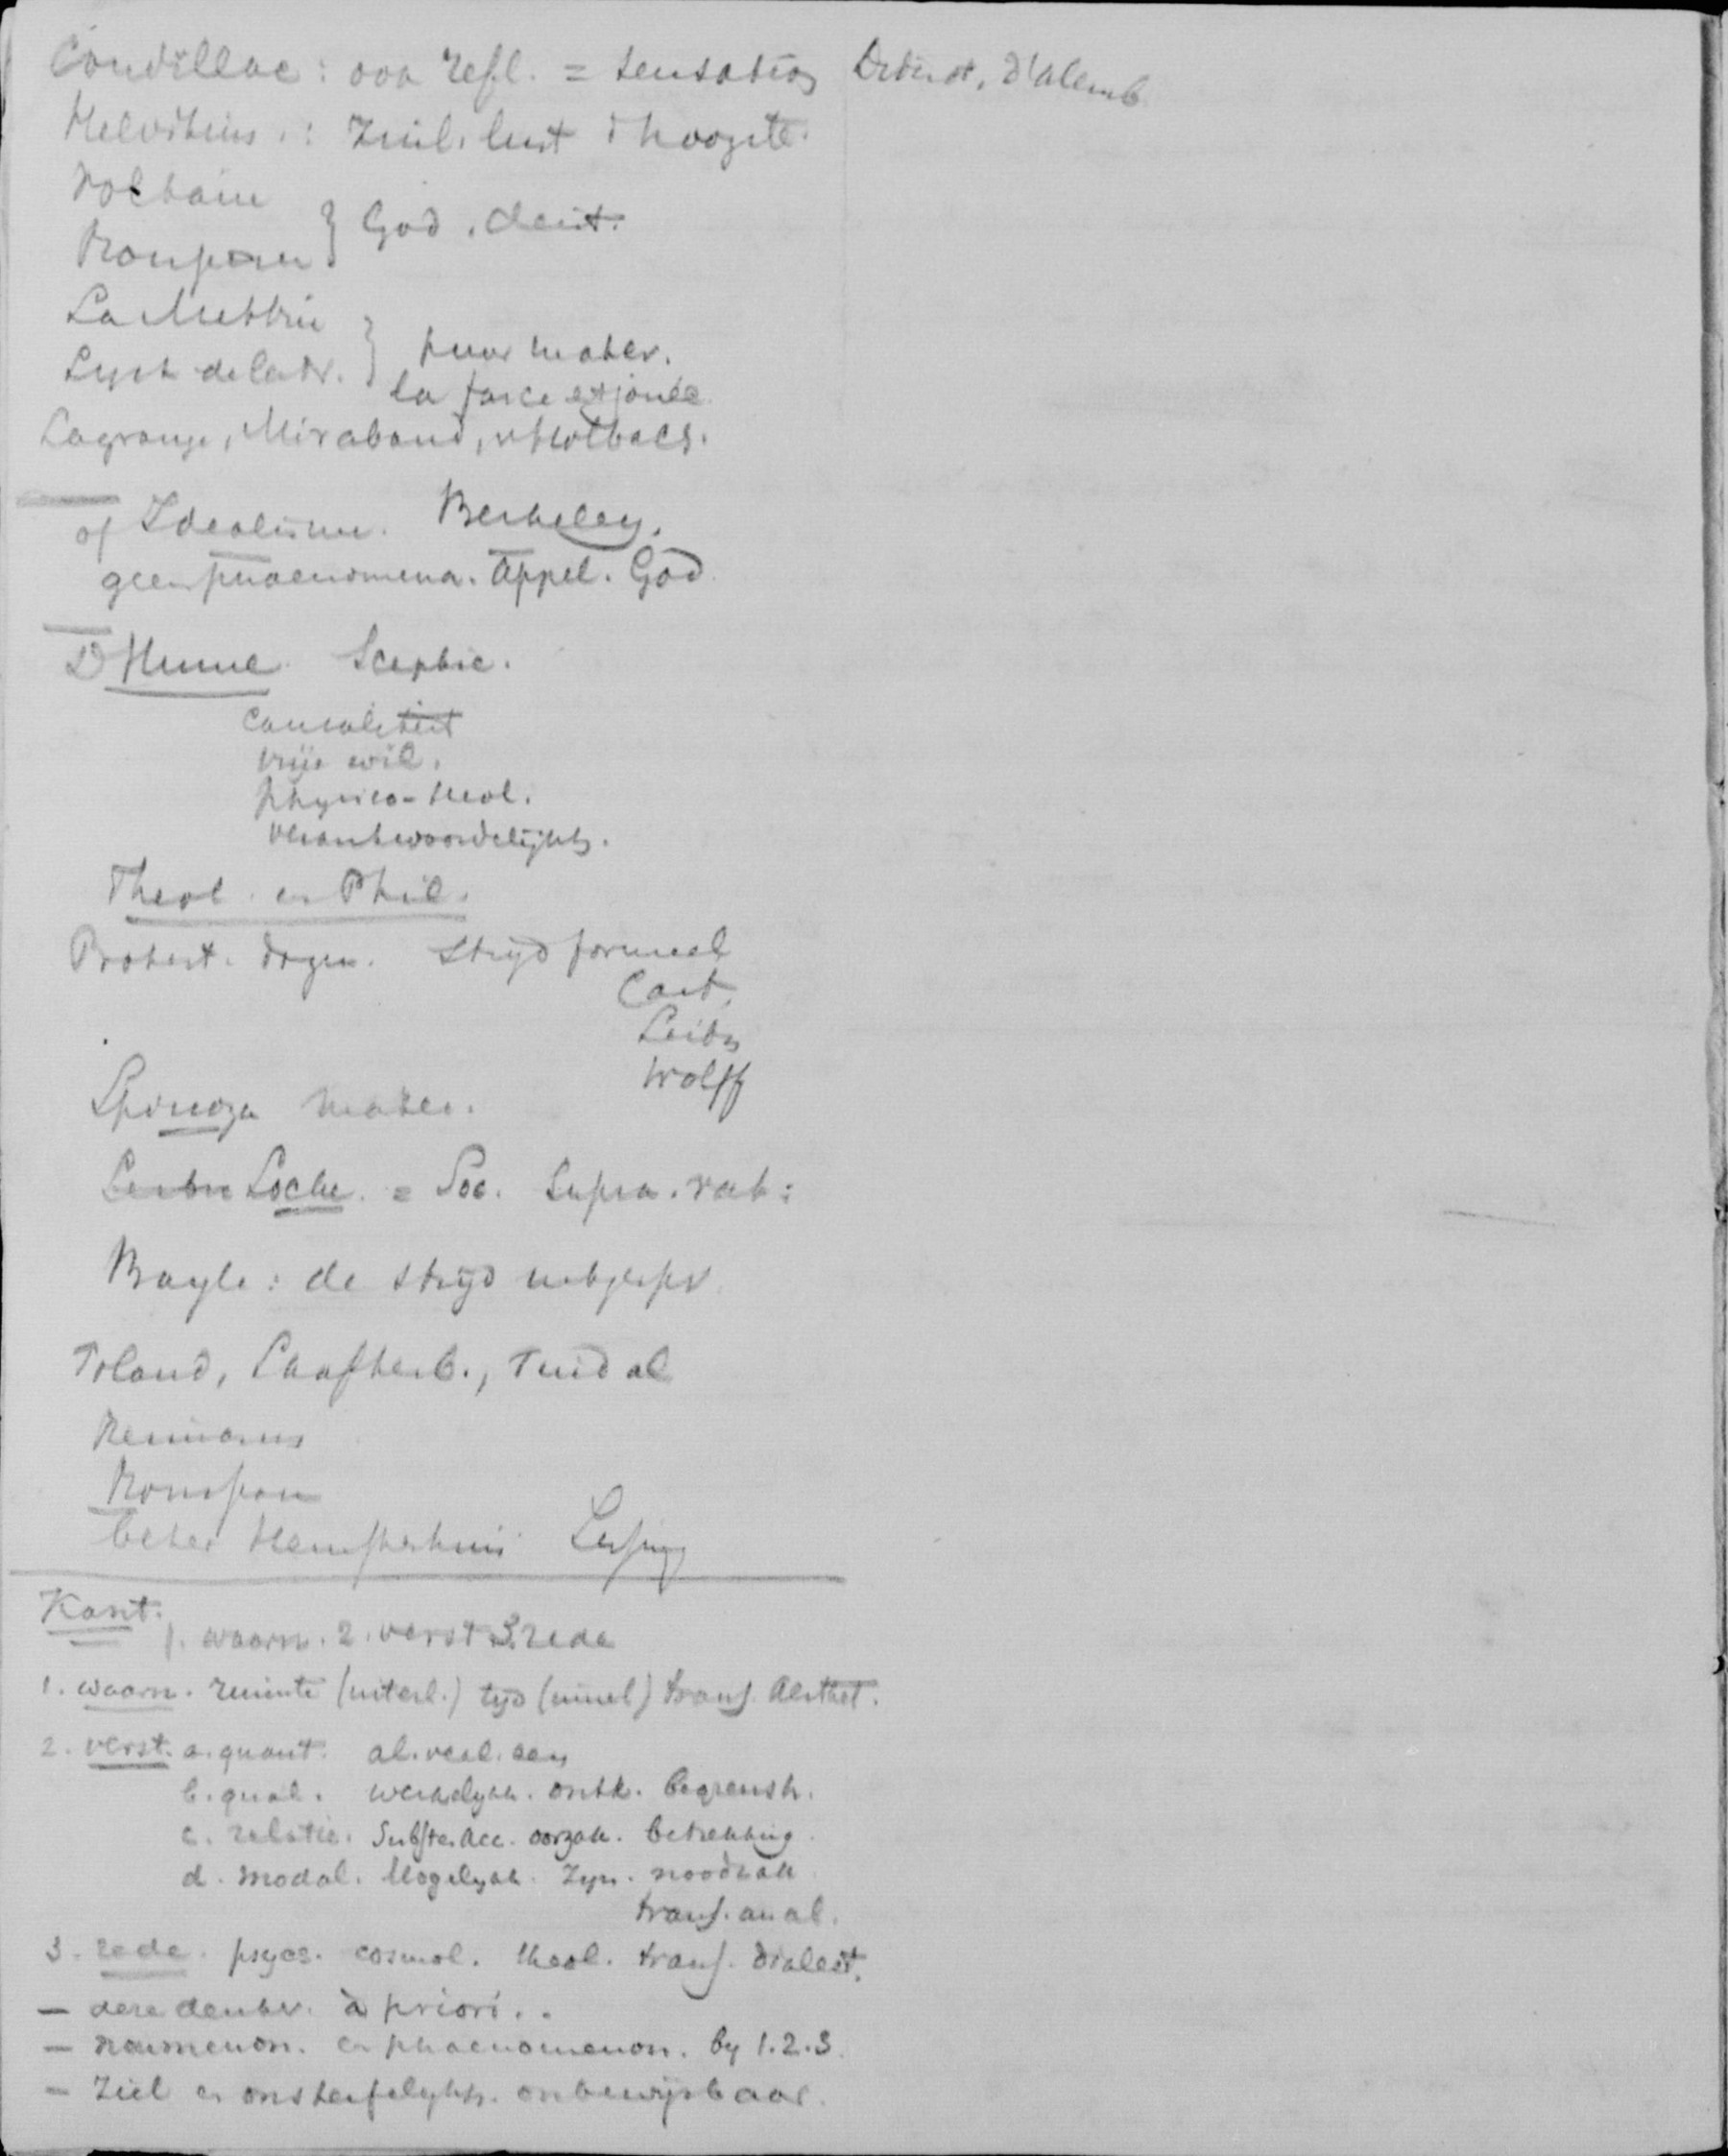 Condillac: ook refl. = sensation Diderot, d'Alemb
Helvetius.: Zinl. lust 't hoogste.
Voltaire
Rousseau } God. deist.
La Mettrie
Syst. de la N. } puur mater.
la farce est jouée
Lagrange, Mirabaud, v Holbach.
of Idealisme. Berkeley.
geen phaenomena. Appel. God
D Hume. Sceptic.
causaliteit
vrije wil.
physico-theol.
verantwoordelijkh.
Theol. en Phil.
Protest. dogm. Strijd formeel
Cart.
Leibn
Wolff
Spinoza mater.
Locke. = Soc. supra. rat:
Bayle: de strijd uitgespr.
Toland, Shaftesb., Tindal
Reimarus
Rousseau
beter Hemsterhuis Lessing
Kant.
1. waarn. 2. verst. 3. rede
1. waarn. ruimte (uiterl.) tijd (innerl) transc. Aesthet.
2. verst. a. quant. al. veel. een
b. qual. werkelijkh. ontk. begrensh.
c. relatie. Subst en Acc. oorzak. betrekking.
d. modal. Mogelijkh. Zijn. noodzak
transc. anal.
3. rede. psych. cosmol. theol. transc. dialect.
— deze denkv. à priori..
— noumenon. en phaenomenon. by 1.2.3.
— Ziel en onsterfelijkh. onbewijsbaar.